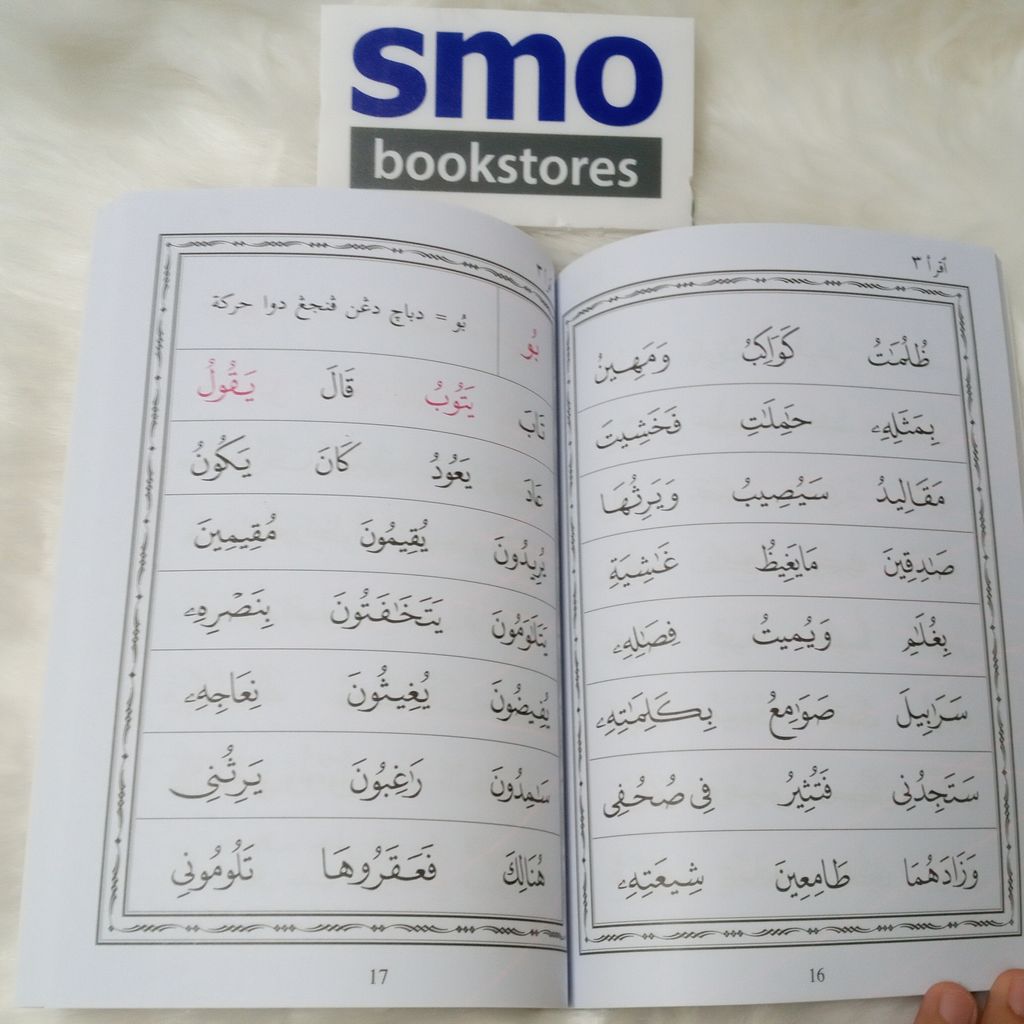 smo
bookstores
اقرأ ٣
ظُلُمَٰتُ كَوَاكِبُ وَمَهِينٌ
بِمَثَلِهِۦ حَٰمِلَٰتِ فَخَشِيتَ
مَقَالِيدُ سَيُصِيبُ وَيَرِثُهَا
صَٰدِقِينَ مَايَغِيظُ غَٰشِيَةِ
بِغُلَٰمٍ وَيُمِيتُ فِصَٰلِهِۦ
سَرَٰبِيلَ صَوَٰمِعُ بِكَلِمَٰتِهِۦ
سَتَجِدُنِى فَتُثِيرُ فِى صُحُفِى
وَزَادَهُمَا طَامِعِينَ شِيعَتِهِۦ
16
بُو بُو = دباچ دڠن ڤنجڠ دوا حركة
تَابَ يَتُوبُ قَالَ يَقُولُ
عَادَ يَعُودُ كَانَ يَكُونُ
يُرِيدُونَ يُقِيمُونَ مُقِيمِينَ
يَتَلَٰوَمُونَ يَتَخَٰفَتُونَ بِنَصْرِهِۦ
يُفِيضُونَ يُغِيثُونَ نِعَاجِهِۦ
سَٰمِدُونَ رَٰغِبُونَ يَرِثُنِى
هُنَالِكَ فَعَقَرُوهَا تَلُومُونِى
17